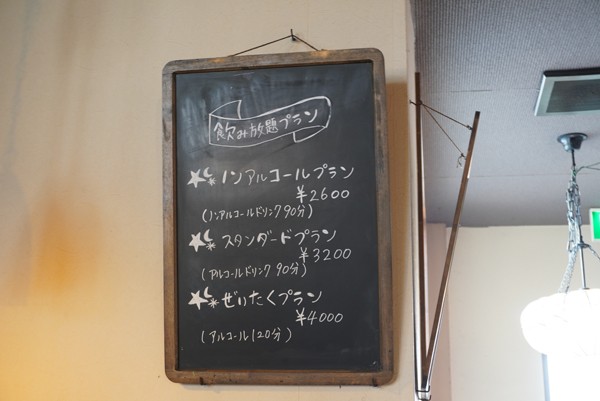 飲み放題プラン
ノンアルコールプラン
¥2600
(ノンアルコールドリンク90分)
スタンダードプラン
¥3200
(アルコールドリンク 90分)
ぜいたくプラン
¥4000
(アルコール120分)